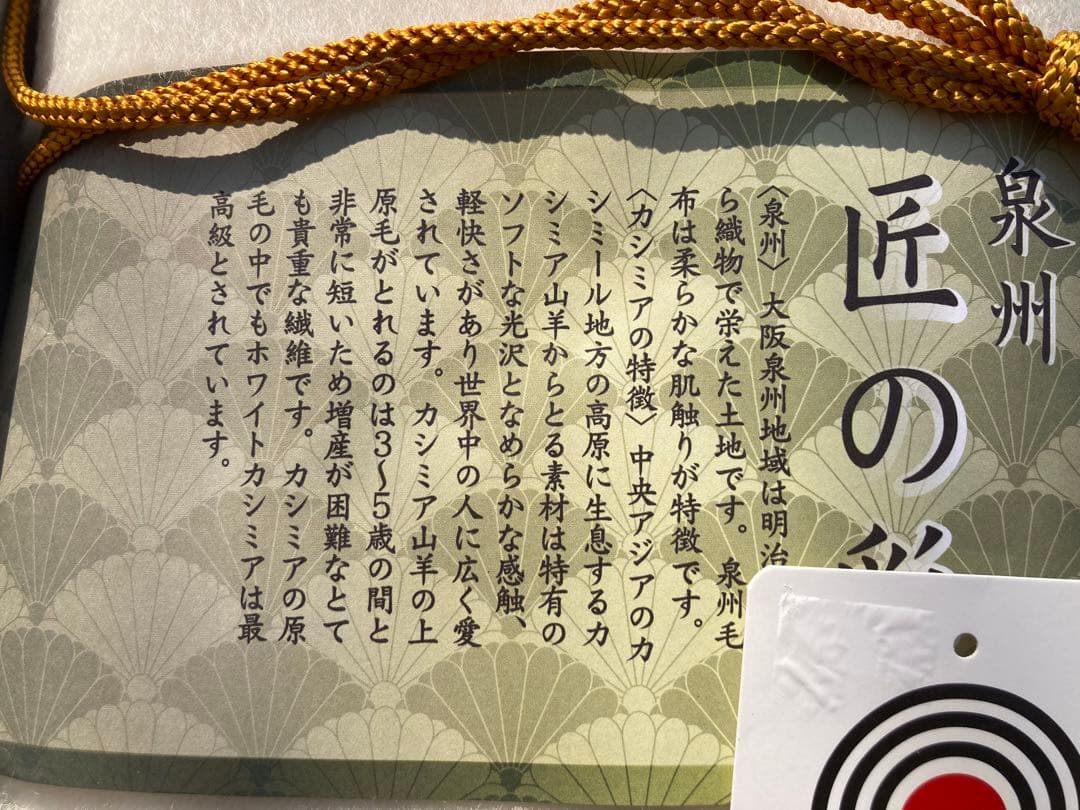 泉州
匠の
〈泉州〉 大阪泉州地域は明治
ら織物で栄えた土地です。 泉州毛
布は柔らかな肌触りが特徴です。
〈カシミアの特徴〉 中央アジアのカ
シミール地方の高原に生息するカ
シミア山羊からとる素材は特有の
ソフトな光沢となめらかな感触、
軽快さがあり世界中の人に広く愛
されています。 カシミア山羊の上
原毛がとれるのは3〜5歳の間と
非常に短いため増産が困難なとて
も貴重な繊維です。カシミアの原
毛の中でもホワイトカシミアは最
高級とされています。